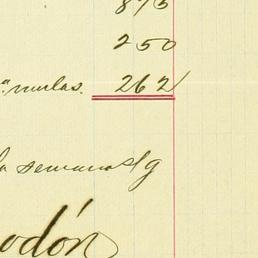 875
250
" mulas. 262
la semana s/g
odón